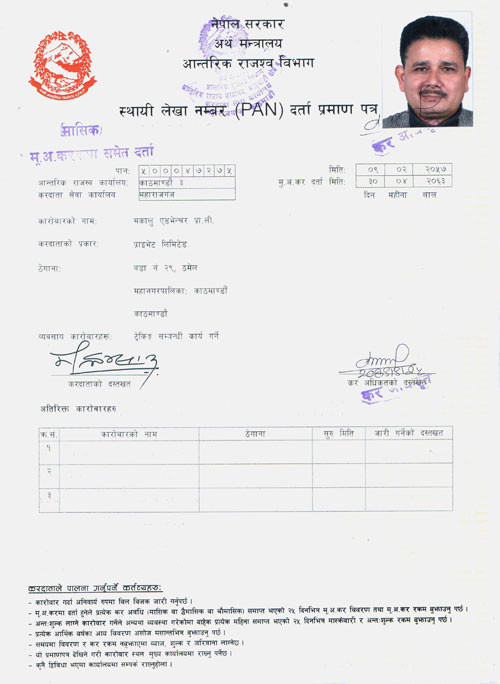 नेपाल सरकार
अर्थ मन्त्रालय
आन्तरिक राजश्व विभाग
स्थायी लेखा नम्बर (PAN) दर्ता प्रमाण पत्र
मासिक
मू.अ.करमा समेत दर्ता
पान: ५ ० ० ० ४ ७ २ ७ ५
मिति: ०९ ०२ २०५७
आन्तरिक राजस्व कार्यालय: काठमाण्डौं ३
मू.अ.कर दर्ता मिति: ३० ०४ २०६३
करदाता सेवा कार्यालय महाराजगंज
दिन महीना साल
कारोबारको नाम: मकालु एडभेन्चर प्रा.ली.
करदाताको प्रकार: प्राइभेट लिमिटेड
ठेगाना: वडा नं २९, ठमेल
महानगरपालिका: काठमाण्डौं
काठमाण्डौं
व्यवसाय कारोबारहरू: ट्रेकिङ सम्बन्धी कार्य गर्ने
करदाताको दस्तखत
कर अधिकृतको दस्तखत
अतिरिक्त कारोबारहरु
क्र.सं. कारोबारको नाम ठेगाना सुरु मिति जारी गर्नेको दस्तखत
१
२
३
करदाताले पालना गर्नुपर्ने कर्तव्यहरू:
- कारोबार गर्दा अनिवार्य रुपमा बिल बिजक जारी गर्नुपर्छ ।
- मू.अ.करमा दर्ता हुनेले प्रत्येक कर अवधि (मासिक वा द्वैमासिक वा चौमासिक) समाप्त भएको २५ दिनभित्र मू.अ.कर विवरण तथा मू.अ.कर रकम बुझाउनु पर्छ ।
- अन्त:शुल्क लाग्ने कारोबार गर्नेले अन्यथा व्यवस्था गरेकोमा बाहेक प्रत्येक महिना समाप्त भएको २५ दिनभित्र मास्केबारी र अन्त:शुल्क रकम बुझाउनु पर्छ ।
- प्रत्येक आर्थिक वर्षका आय विवरण असोज मसान्तभित्र बुझाउनु पर्छ ।
- समयमा विवरण र कर रकम नबुझाएमा ब्याज, शुल्क र जरिवाना लाग्नेछ ।
- यो प्रमाणपत्र देखिने गरी कारोबार स्थल मुख्य कार्यालयमा राख्नु पर्नेछ ।
- कुनै द्विविधा भएमा कार्यालयमा सम्पर्क राख्नुहोला ।